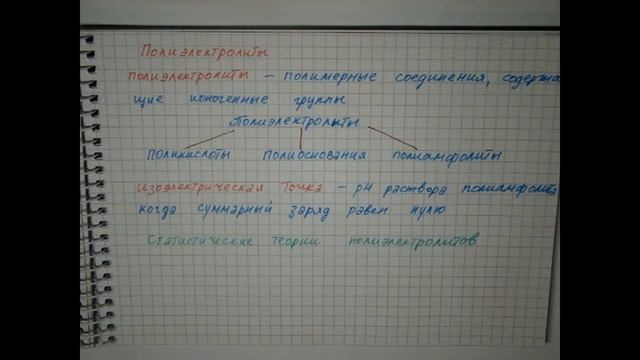 Полиэлектролиты
полиэлектролиты – полимерные соединения, содержа
щие ионогенные группы
Полиэлектролиты
поликислоты полиоснования полиамфолиты
изоэлектрическая точка – pH раствора полиамфоли
когда суммарный заряд равен нулю
Статистические теории полиэлектролитов